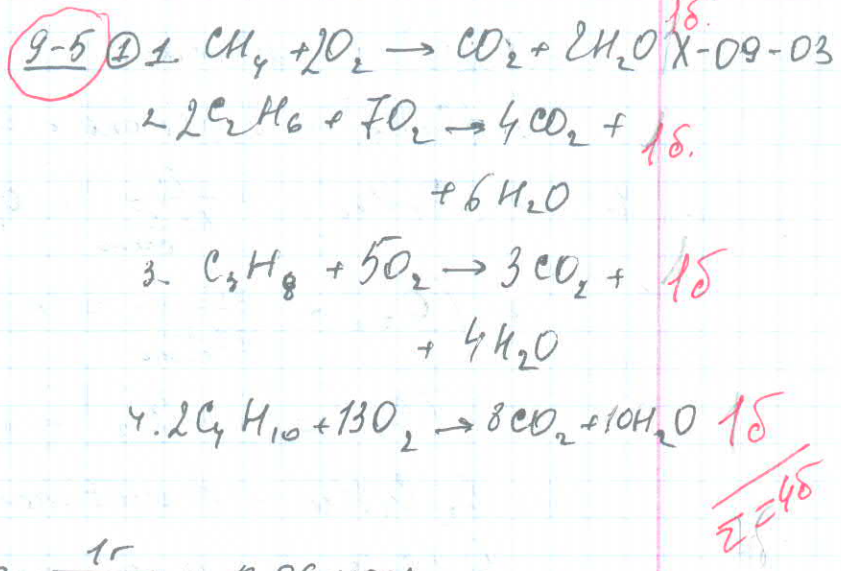 1б.
9-5 ① 1. CH₄ + 2O₂ → CO₂ + 2H₂O X-09-03
2. 2C₂H₆ + 7O₂ → 4CO₂ + 1б.
+ 6H₂O
3. C₃H₈ + 5O₂ → 3CO₂ + 1б
+ 4H₂O
4. 2C₄H₁₀ + 13O₂ → 8CO₂ + 10H₂O 1б
Σ = 4б
1г